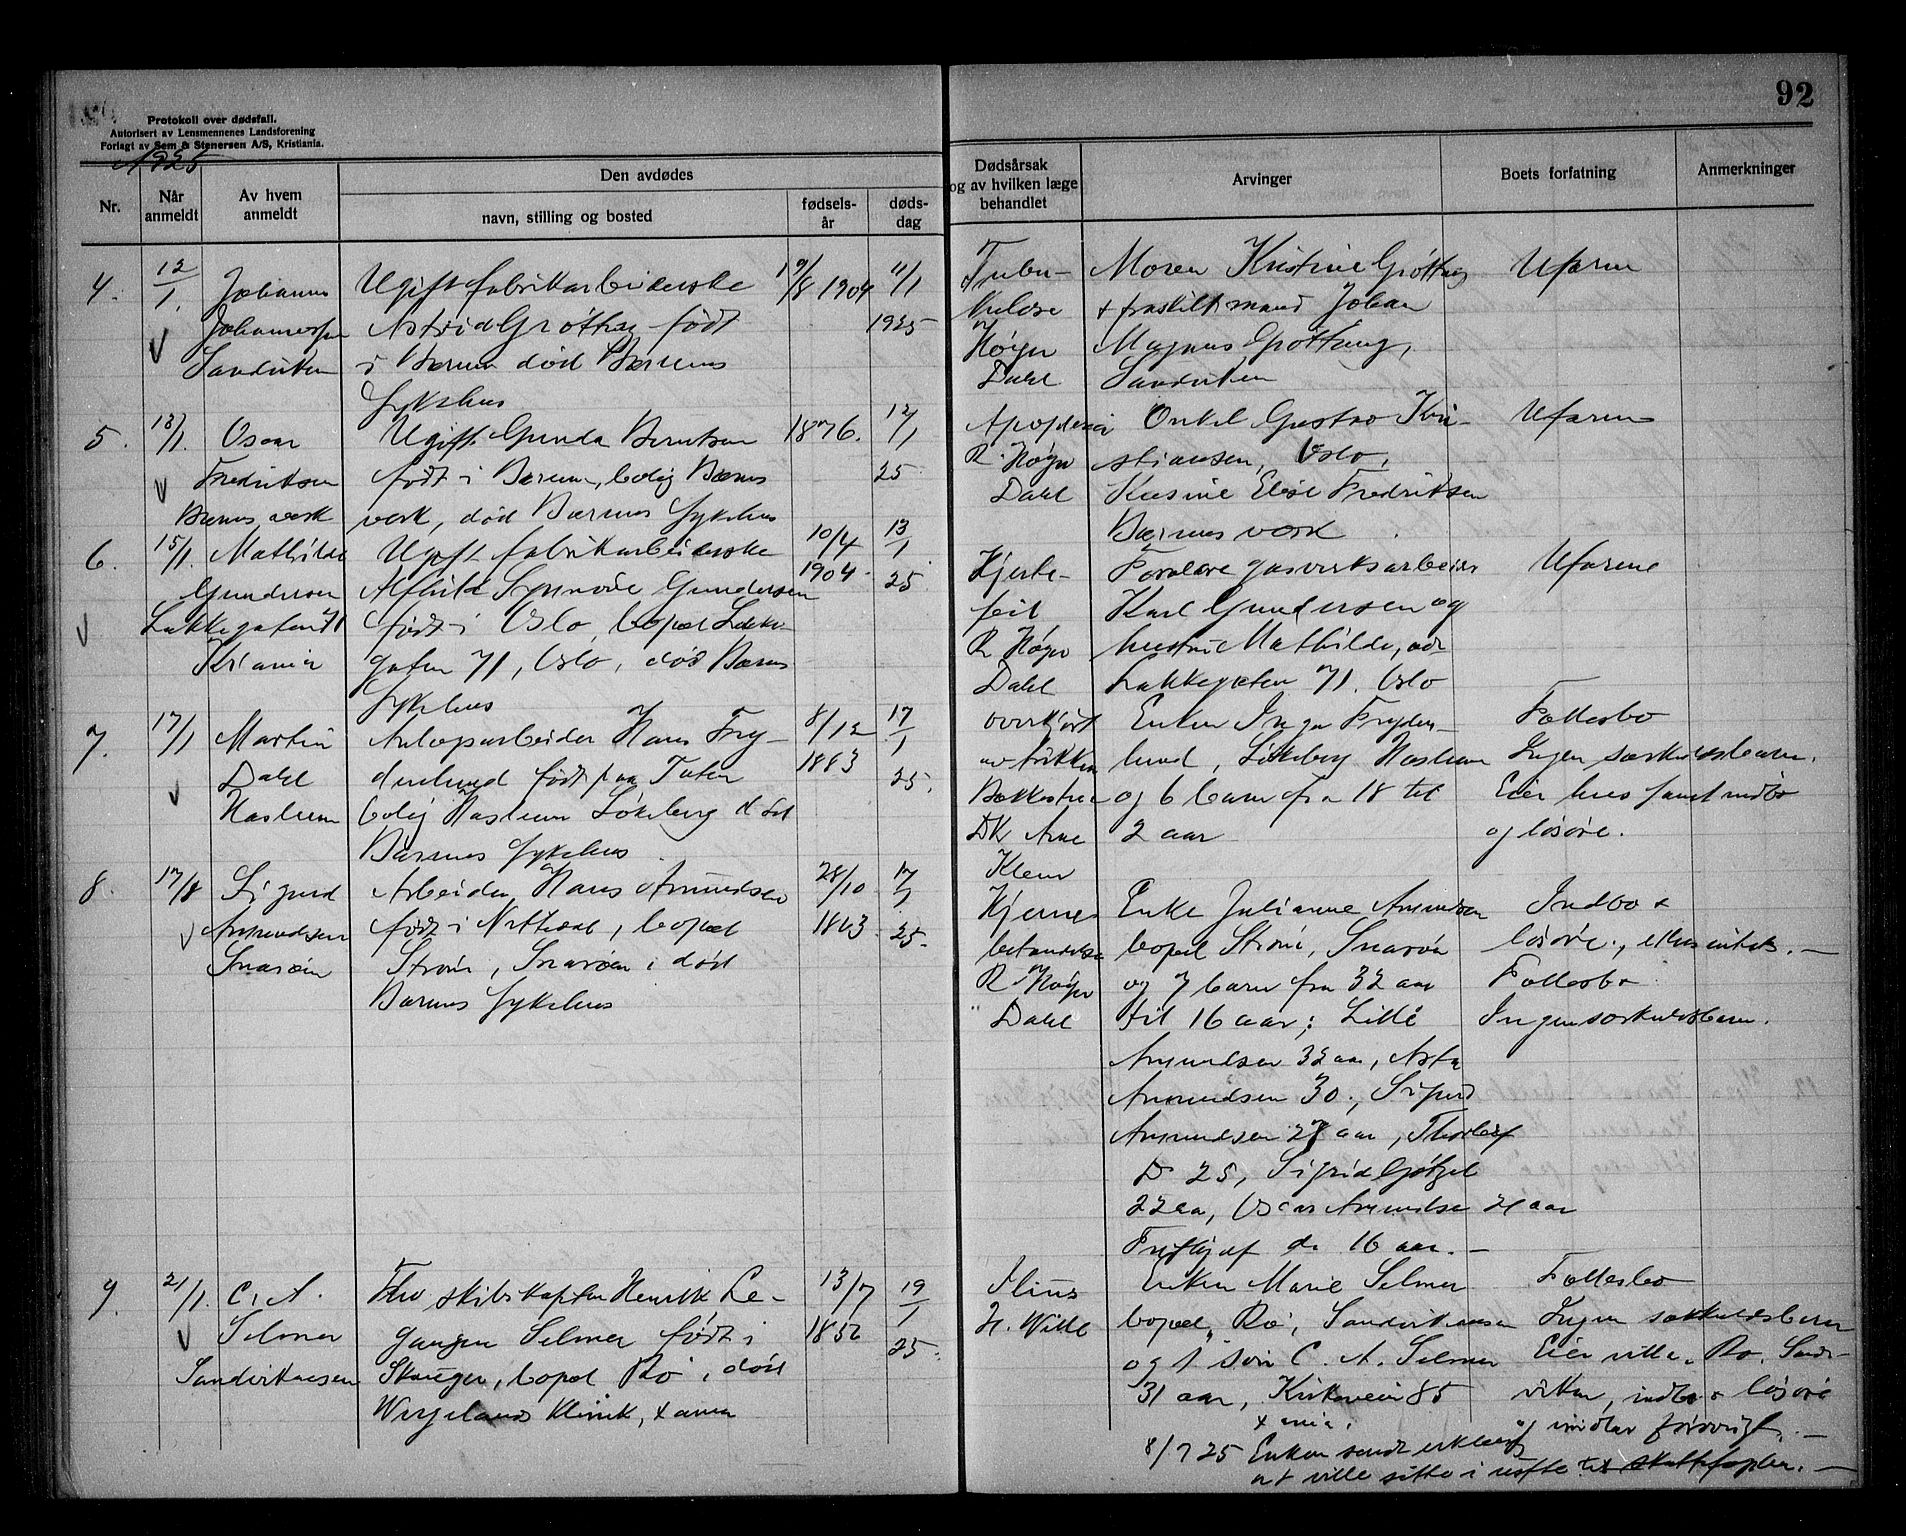 92
Protokoll over dødsfall.
Autorisert av Lensmennenes Landsforening
Forlagt av Sem & Stenersen A/S, Kristiania.
1925
Nr.
Når anmeldt
Av hvem anmeldt
Den avdødes
navn, stilling og bosted
fødsels-år
døds-dag
Dødsårsak og av hvilken læge behandlet
Arvinger
Boets forfatning
Anmerkninger
4.
12/1
Johannes
Sandviken
Ugift fabrikarbeiderske
Astrid Grøttug født
i Bærum død Bærums
Sykehus
19/8 1904
11/1
1925
Tuber-
kulose
Høyer
Dahl
Moren Kristine Grøttug
+ fraskilt mand Johan
Magnus Grøttug,
Sandviken
Uformu
5.
13/1.
Oscar
Fredriksen
Bærums verk
Ugift Gunda Berntsen
født i Bærum, bolig Bærums
verk, død Bærums Sykehus
1876.
12/1
25
Apopleksi
R. Høyer
Dahl
Onkel Gustav Kri-
stiansen, Oslo,
Elise Fredriksen
Bærums verk.
Uformu
6.
15/1.
Mathilde
Gundersen
Lakkegaten 71
Kr.ania
Ugift fabrikarbeiderske
Alfhild Synnøve Gundersen
født i Oslo, bopæl Lakke-
gaten 71, Oslo, død Bærums
Sykehus
10/4
1904.
13/1
25
Hjerte-
feil
R Høyer
Dahl
Forældre gasverksarbeider
Karl Gundersen og
hustru Mathilde, adr
Lakkegaten 71. Oslo
Uformu
7.
17/1
Martin
Dahl
Haslum
Anlægsarbeider Hans Fry-
denlund født paa Toten
bolig Haslum Løkeberg død
Bærums Sykehus.
8/12
1883
17/1
25.
overkjørt
av trikken
Bekkestua
DR Arne
Klem
Enken Inga Fryden-
lund, Løkeberg Haslum
og 6 barn fra 18 til
2 aar
Fællesbo
Ingen særkuldsbarn.
Eier hus samt indbo
og løsøre.
8.
17/8
Sigurd
Amundsen
Snarøen
Arbeider Hans Amundsen
født i Nittedal, bopæl
Snarøen, død
Bærums Sykehus
28/10
1863.
17/1
25.
Hjerne
betændelse
R Høyer
Dahl
Enke Julianne Amundsen
bopæl Snarøen
og 7 barn fra 32 aar
til 16 aar: Lilli
Amundsen 32 aar, Asta
Amundsen 30., Sigurd
Amundsen 27 aar, Thorleif
D 25, Sigrid
22 aa, Oscar Amundsen 21 aar
Fritjof do 16 aar. —
Indbo &
løsøre., ellers intet. —
Fællesbo.
Ingen særkuldsbarn.
9.
21/1.
C. A.
Selmer
Sandvikaasen
Fhv skibskaptein Henrik Le-
gangen Selmer født i
bopæl Ro, død
Wergelands Klinik, Xania
13/7
1852
19/1
25.
Ileus
H. Wille
Enken Marie Selmer
bopæl "Ro", Sandvikaasen
og 1 søn C. A. Selmer
31 aar, Kirkeveien 85
Xania.
8/7 25 Enken sendt erklæring
at ville sitte i uskifte til skattefogden. —
Fællesbo
Ingen særkuldsbarn
Eier villa Ro, Sand-
viken, indbo & løsøre
og midler forøvrigt. —